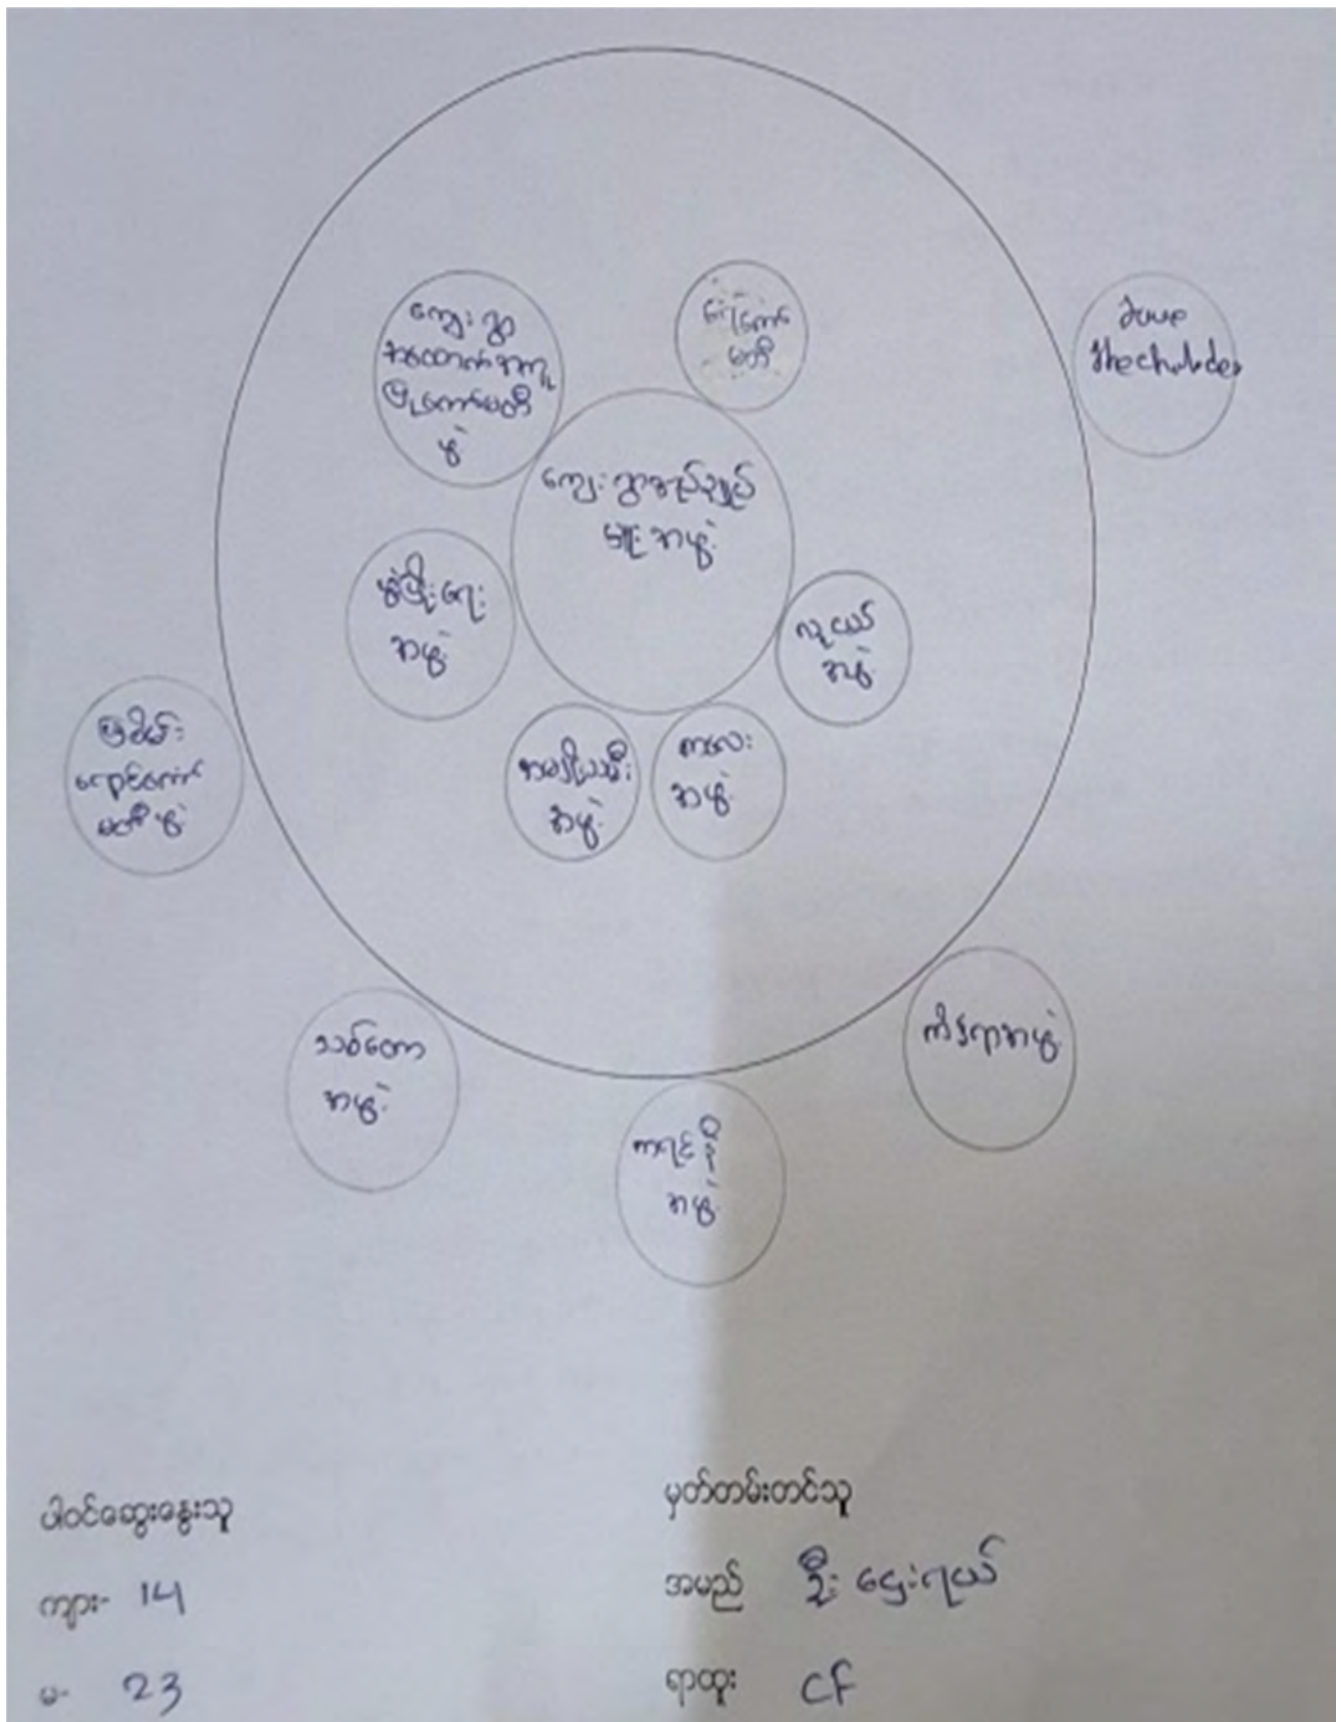 ကျေးရွာ
အထောက်အကူ
ပြုကော်မတီ
ဖွဲ့
ရေကော်
မတီ
Save
the
ကျေးရွာအုပ်ချုပ်
မှုအဖွဲ့
ဖွံ့ဖြိုးရေး
အဖွဲ့
လူငယ်
အဖွဲ့
အမျိုးသမီး
အဖွဲ့
ကလေး
အဖွဲ့
မတီဖွဲ့
သစ်တော
အဖွဲ့
ကရင်နီ
အဖွဲ့
အဖွဲ့
ပါဝင်ဆွေးနွေးသူ
ကျား- 14
မ- 23
မှတ်တမ်းတင်သူ
အမည် ဦးဌေးရယ်
ရာထူး CF